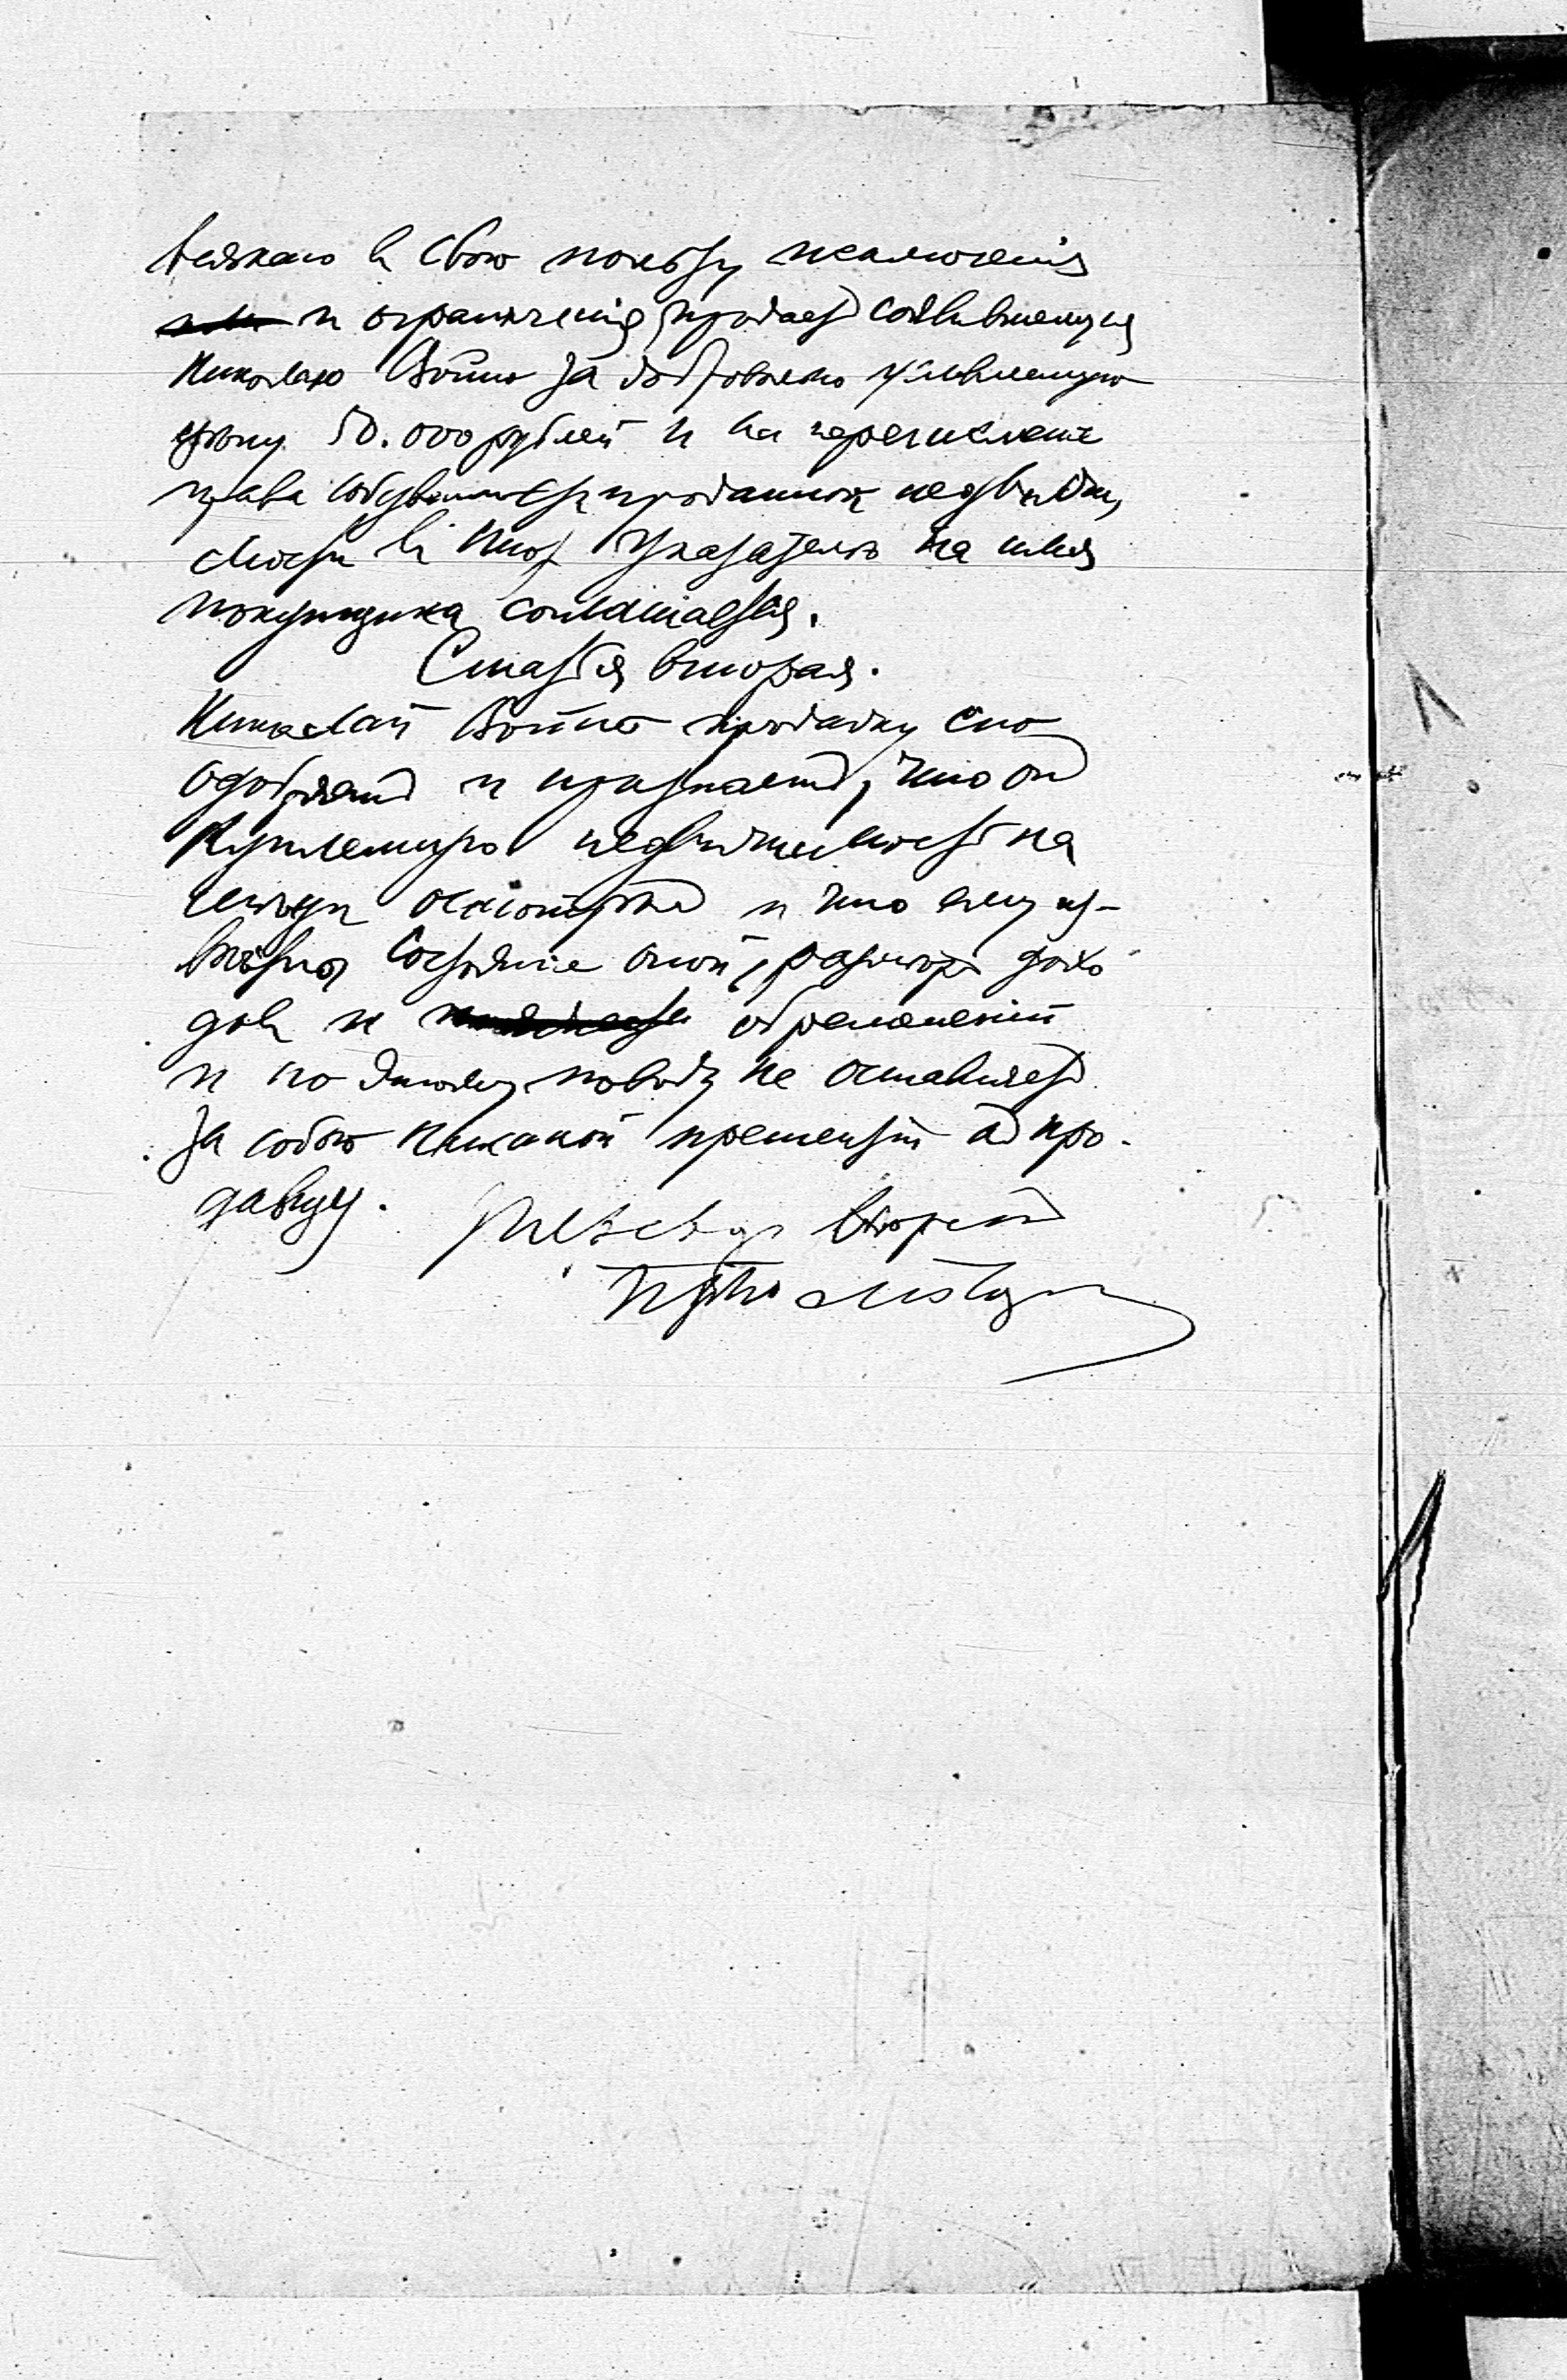 всякаго въ свою пользу исключенія
и ограниченія, продаетъ соявившемуся
Николаю Войно за добровольно условленную
цѣну 50.000 рублей и на перечисленіе
права собственности проданной недвижи-
мости въ Ипот. Указателѣ на имя
покупщика соглашается.
Статья вторая.
Николай Войно продажу сію
одобряетъ и признаетъ, что онъ
купленную недвижимость на
осмотрѣлъ и что ему из-
вѣстно состояніе оной, размѣръ дохо
довъ и обремененій
и по этому поводу не оставляетъ
за собою никакой претензіи къ про-
давцу.